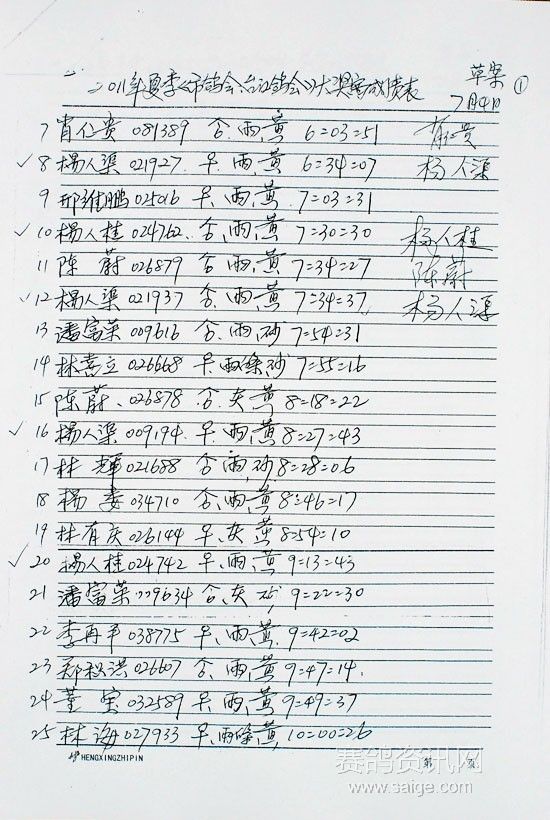 草案 ①
二〇11年夏季《市鸽会、台江鸽会》大奖赛成绩表
7月4日
7 肖仁贵 081389 合 雨、黄 6=03=51 肖仁贵
8 杨人渠 021927 早、雨、黄 6=34=07 杨人渠
9 邢维鹏 025016 早、雨、黄 7=03=31
10 杨人桂 024762 合 雨、黄 7=30=30 杨人桂
11 陈蔚 026879 合 雨、黄 7=34=27 陈蔚
12 杨人渠 021937 合 雨、黄 7=34=37 杨人渠
13 潘富荣 009616 合、雨、砂 7=54=31
14 林喜立 026668 早 雨条 砂 7=55=16
15 陈蔚 026878 合 灰 黄 8=18=22
16 杨人渠 009194 早、雨、黄 8=27=43
17 林辉 021688 合 雨、砂 8=28=06
18 杨 034710 合、雨、黄 8=46=17
19 林有庆 026144 早、灰 黄 8=54=10
20 杨人桂 024742 早、雨、黄 9=13=43
21 潘富荣 009634 合、灰 砂 9=22=30
22 李再平 038775 早、雨、黄 9=42=02
23 郑 洪 026607 合、雨、黄 9=47=14
24 董宝 032589 早 雨、黄 9=49=37
25 林海 027933 早、雨条 黄 10=00=26
HENGXINGZHIPIN 第 页
赛鸽资讯网
www.saige.com